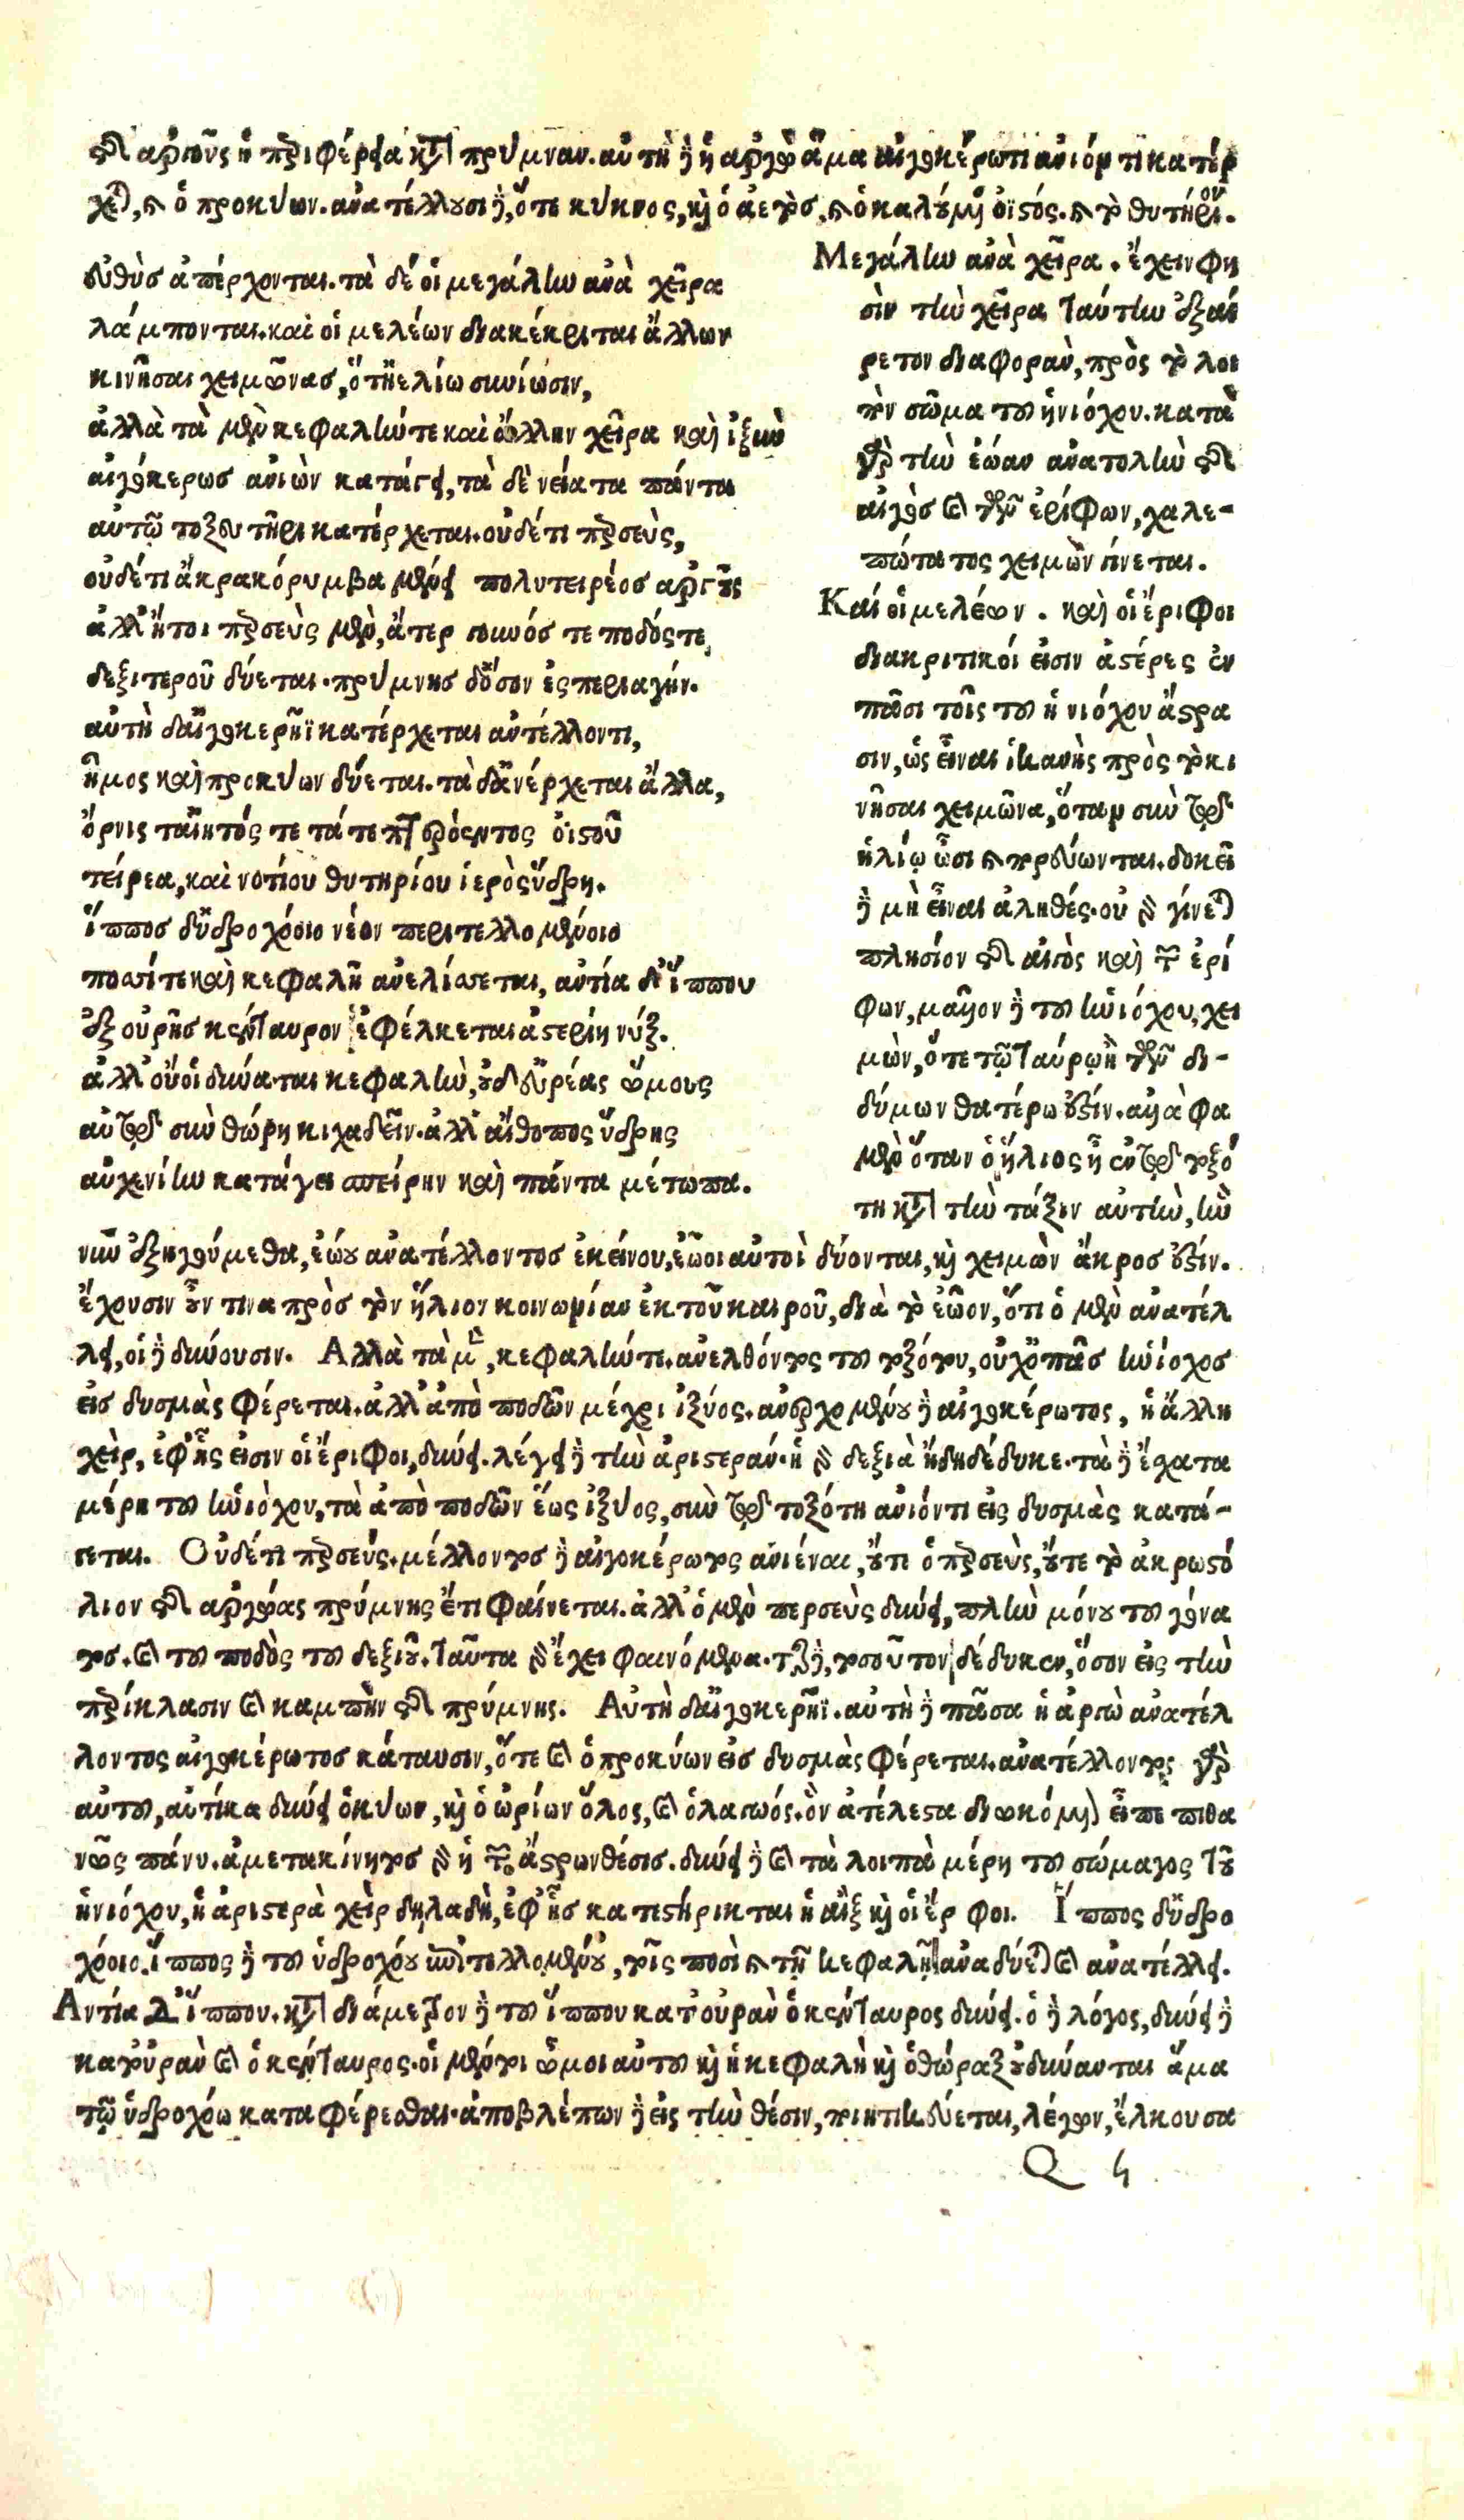 τῆς ἀργοῦς ἡ περιφέρεια κατὰ πρύμναν. αὐτὴ δὲ ἡ ἀργὼ ἅμα αἰγοκέρωτι ἀνιόντι κατέρ
χεται, καὶ ὁ προκύων. ἀνατέλλουσι δὲ, ὅτε κύκνος, καὶ ὁ ἀετὸσ. καὶ ὁ καλούμενος ὀϊστός. καὶ τὸ θυτήριον.
εὐθὺσ ἀπέρχονται. τὰ δέ οἱ μεγάλην ἀνὰ χεῖρα
λάμπονται. καὶ οἱ μελέων διακέκριται ἄλλων
κινῆσαι χειμῶνασ, ὅτ' ἠελίω συνίωσιν,
ἀλλὰ τὰ μὲν κεφαλήν τε καὶ ἄλλην χεῖρα καὶ ἰξὺν
αἰγόκερωσ ἀνιὼν κατάγει, τὰ δὲ νείατα πάντα
αὐτῶ τοξευτῆρι κατέρχεται. οὐδέτι περσεὺς,
οὐδέτι ἄκρα κόρυμβα μένει πολυτειρέοσ ἀργοῦς
ἀλλ' ἤτοι περσεὺς μὲν, ἄτερ γουνός τε ποδός τε,
δεξιτεροῦ δύεται. πρύμνησ δ' ὅσον ἐς περιαγήν.
αὐτὴ δ' αἰγοκερῆϊ κατέρχεται ἀντέλλοντι,
ἦμος καὶ προκύων δύεται. τὰ δ' ἀνέρχεται ἄλλα,
ὄρνις τ' αἰητός τε τά τε πτερόεντος ὀϊστοῦ
τείρεα, καὶ νοτίου θυτηρίου ἱερὸς ἕδρη.
ἵππος δ' ὑδροχόοιο νέον περιτελλομένοιο
ποσσίτε καὶ κεφαλῆ ἀνελίσσεται, ἀντία δ' ἵππου
ἐξ οὐρῆσ κένταυρον ἐφέλκεται ἀστερίη νύξ.
ἀλλ' οὔ οἱ δύναται κεφαλὴν, οὐδ' εὐρέας ὤμους
αὐτῷ σὺν θώρηκι χαδεῖν. ἀλλ' αἴθοπος ὕδρης
αὐχενίην κατάγει σπείρην καὶ πάντα μέτωπα.
Μεγάλην ἀνὰ χεῖρα. ἔχειν φη
σὶν τὴν χεῖρα ταύτην ἐξαί
ρετον διαφορὰν, πρὸς τὸ λοι
πὸν σῶμα τοῦ ἡνιόχου. κατὰ
γὰρ τὴν ἑώαν ἀνατολὴν τῆς
αἰγὸσ καὶ τῶν ἐρίφων, χαλε-
πώτατος χειμὼν γίνεται.
Καί οἱ μελέων. καὶ οἱ ἔριφοι
διακριτικοί εἰσιν ἀστέρες ἐν
πᾶσι τοῖς τοῦ ἡνιόχου ἄστρα
σιν, ὡς εἶναι ἱκανὴς πρὸς τὸ κι
νῆσαι χειμῶνα, ὅταν σὺν τῷ
ἡλίῳ ὦσι καὶ πορεύωνται. δοκεῖ
δὲ μὴ εἶναι ἀληθές. οὐ γὰρ γίνεται
πλησίον τῆς αἰγὸς καὶ τῶν ἐρί
φων, μᾶλλον δὲ τοῦ ἡνιόχου, χει
μὼν, ὅτε τῷ ταύρῳ ἢ τῶν δι-
δύμων θατέρω ἐστίν. ἀλλὰ φα
μὲν ὅταν ὁ ἥλιος ἦ ἐν τῷ τοξό
τη κατὰ τὴν τάξιν αὐτὴν, ἣν
νῦν ἐξηγούμεθα, ἑώου ἀνατέλλοντοσ ἐκείνου, ἑῶοι αὐτοὶ δύονται, καὶ χειμὼν ἄκροσ ἐστίν.
ἔχουσιν οὖν τινα πρὸσ τὸν ἥλιον κοινωνίαν ἐκ τοῦ καιροῦ, διὰ τὸ ἑῶον, ὅτι ὁ μὲν ἀνατέλ
λει, οἱ δὲ δύνουσιν. Αλλὰ τὰ μὲν, κεφαλήν τε. ἀνελθόντος τοῦ τοξότου, οὐχ ὁ πᾶσ ἡνίοχοσ
εἰσ δυσμὰς φέρεται. ἀλλ' ἀπὸ ποδῶν μέχρι ἰξύος. ἀνερχομένου δὲ αἰγοκέρωτος, ἡ ἄλλη
χεὶρ, ἐφ' ἧς εἰσιν οἱ ἔριφοι, δύνει. λέγει δὲ τὴν ἀριστεράν. ἡ γὰρ δεξιὰ ἤδη δέδυκε. τὰ δὲ ἔσχατα
μέρη τοῦ ἡνιόχου, τὰ ἀπὸ ποδῶν ἕως ἰξύος, σὺν τῷ τοξότη ἀνιόντι εἰς δυσμὰς κατά-
γεται. Οὐδέτι περσεύς. μέλλοντοσ δὲ αἰγοκέρωτος ἀνιέναι, οὔτι ὁ περσεὺς, οὔτε τὸ ἀκρωστό
λιον τῆς ἀργώας πρύμνης ἔτι φαίνεται. ἀλλ' ὁ μὲν περσεὺς δύνει, πλὴν μόνου τοῦ γόνα
τοσ. καὶ τοῦ ποδὸς τοῦ δεξιοῦ. ταῦτα γὰρ ἔχει φαινόμενα. τῆς δὲ, τοσοῦτον δέδυκεν, ὅσον εἰς τὴν
περίκλασιν καὶ καμπὴν τῆς πρύμνης. Αὐτὴ δ' αἰγοκερῆϊ. αὐτὴ δὲ πᾶσα ἡ ἀργὼ ἀνατέλ
λοντος αἰγοκέρωτοσ κάταυσιν, ὅτε καὶ ὁ προκύων εἰσ δυσμὰς φέρεται. ἀνατέλλοντος γὰρ
αὐτοῦ, αὐτίκα δύνει ὁ κύων, καὶ ὁ ὠρίων ὅλος, καὶ ὁ λαγωός. ὃν ἀτέλεστα διωκόμενον εἶπε πιθα
νῶς πάνυ. ἀμετακίνητοσ γὰρ ἡ τῶν ἄστρων θέσισ. δύνει δὲ καὶ τὰ λοιπὰ μέρη τοῦ σώματος τοῦ
ἡνιόχου, ἡ ἀριστερὰ χεὶρ δηλαδὴ, ἐφ' ἧσ κατεστήρικται ἡ αἲξ καὶ οἱ ἔρ φοι. Ἵππος δ' ὑδρο
χόοιο. ἵππος δὲ τοῦ ὑδροχόου ἐπιτελλομένου, τοῖς ποσὶ καὶ τῇ κεφαλῇ ἀναδύεται καὶ ἀνατέλλει.
Αντία δ' ἵππου. κατὰ διάμετρον δὲ τοῦ ἵππου κατ' οὐρὰν ὁ κένταυρος δύνει. ὁ δὲ λόγος, δύνει δὲ
κατ' οὐρὰν καὶ ὁ κένταυρος. οἱ μέντοι ὦμοι αὐτοῦ καὶ ἡ κεφαλὴ καὶ ὁ θώραξ οὐ δύνανται ἅμα
τῷ ὑδροχόω καταφέρεσθαι. ἀποβλέπων δὲ εἰς τὴν θέσιν, ποιητικεύεται, λέγων, ἕλκουσα
Q 4